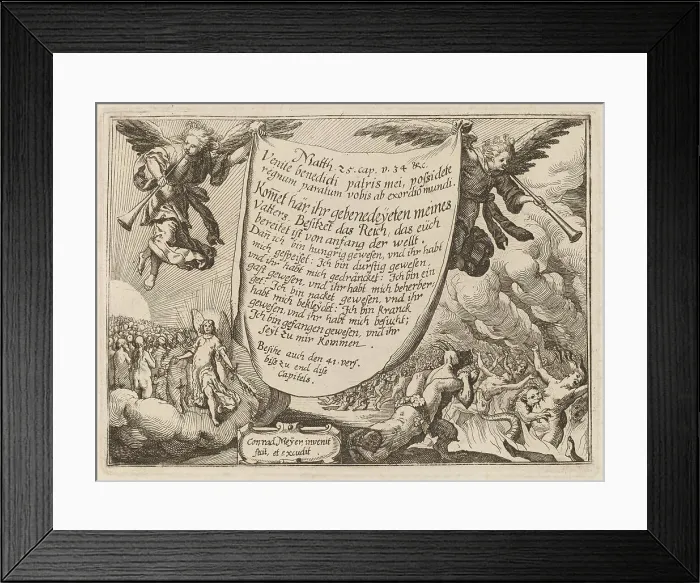 Matth. 25. cap. v. 34 &c.
Venite benedicti patris mei, possidete
regnum paratum vobis ab exordio mundi.
Komet här ihr gebenedeyeten meines
Vatters. Besitzet das Reich, das euch
bereitet ist von anfang der wellt.
Dañ ich bin hungrig gewesen, vnd ihr habt
mich gespeiset: Ich bin durstig gewesen,
vnd ihr habt mich gedräncket: Ich bin ein
gast gewesen, vnd ihr habt mich beherber,
get: Ich bin nacket gewesen, vnd ihr
habt mich bekleydet: Ich bin kranck
gewesen, vnd ihr habt mich besucht;
Ich bin gefangen gewesen, vnd ihr
seyt zu mir kommen.
Besihe auch den 41. vers.
biss zu end diss
Capitels.
Conrad Meÿer invenit
fecit, et excudit